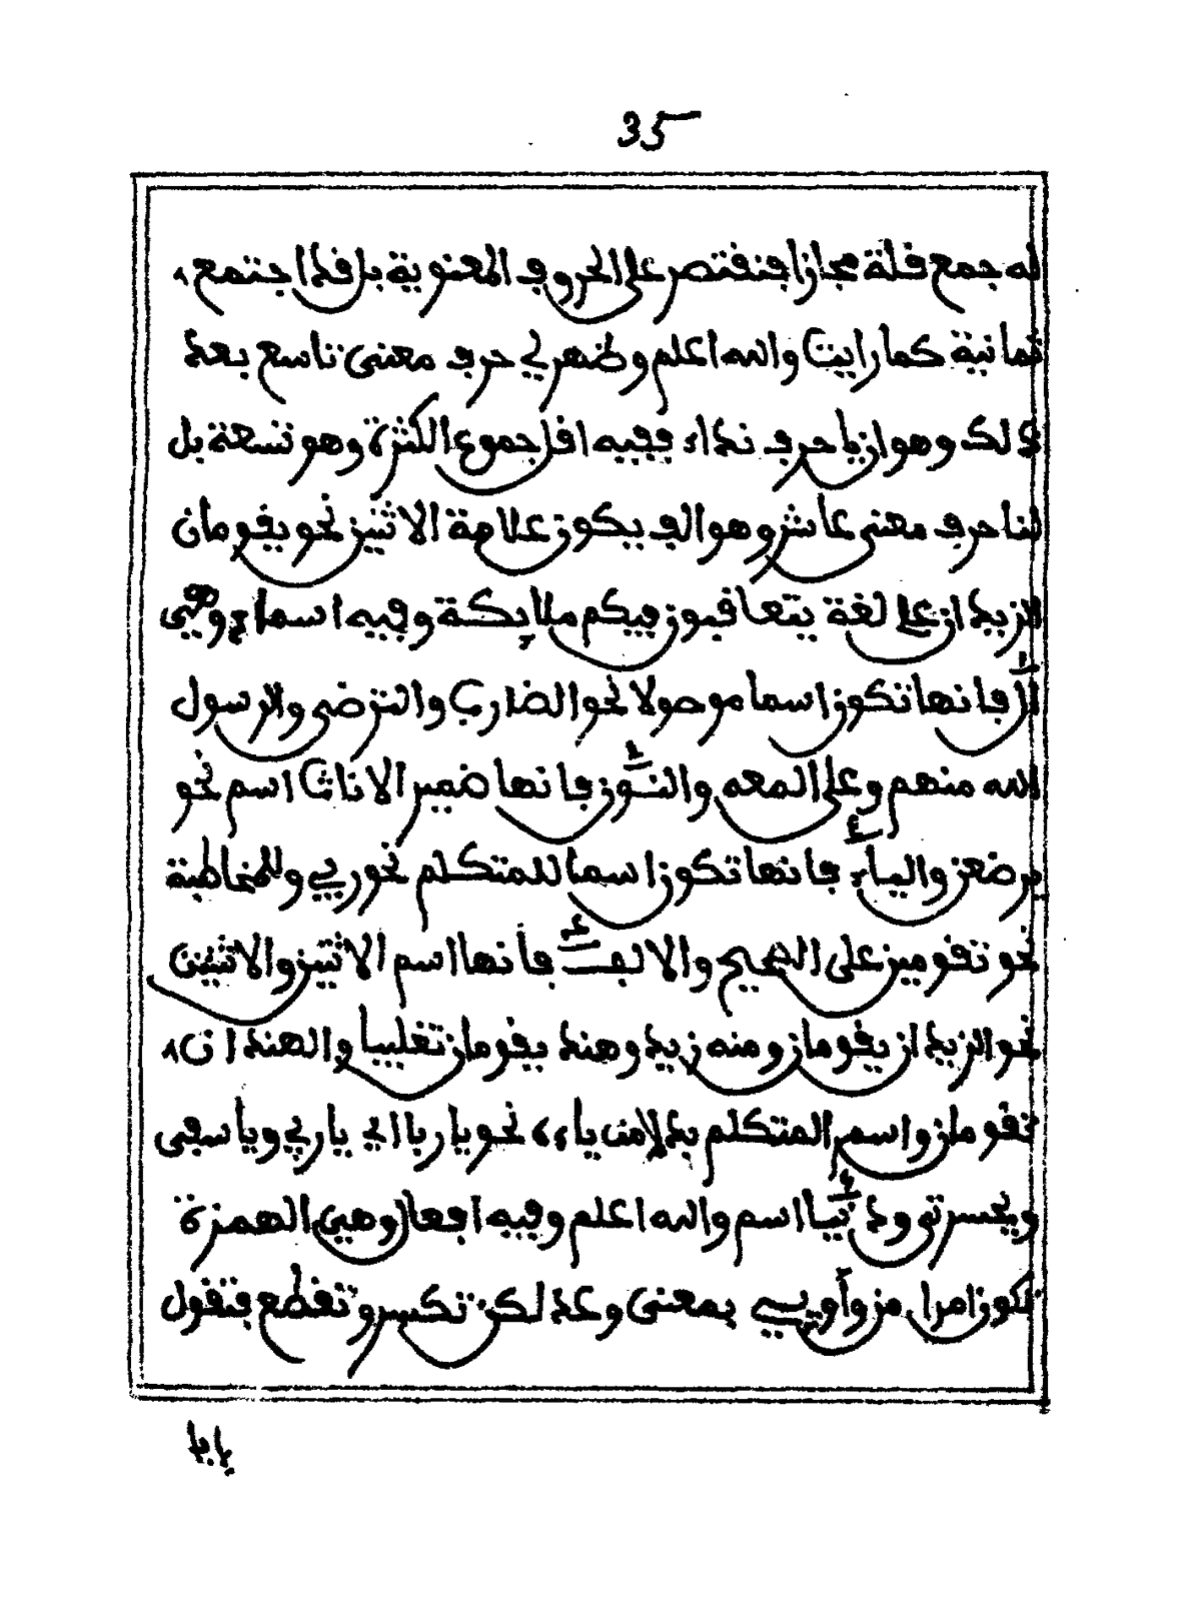 35
له جمع قلة مجازا فنقتصر على الحروف المعنوية بل قد اجتمع
ثمانية كما رايت والله اعلم وظهر لي حرف معنى تاسع بعد
ذلك وهو ان يا حرف نداء ففيه اقل جموع الكثرة وهو تسعة بل
لنا حرف معنى عاشر وهو الف يكون علامة الاثنين نحو يقومان
الزيدان على لغة يتعاقبون فيكم ملايكة وفيه اسماء وهي
ال فانها تكون اسما موصولا نحو الضارب والترضى والرسول
الله منهم وعلى المعه والنون فانها ضمير الاناث اسم نحو
يرضعن والياء فانها تكون اسما للمتكلم نحو ربي وللمخاطبة
نحو تقومين على الصحيح والالف فانها اسم الاثنين والاثنتين
نحو الزيدان يقومان ومنه زيد وهند يقومان تغليبا والهندان
تقومان واسم المتكلم بدلا من ياء نحو يا ربا اي يا ربي ويا سفى
ويحسرتى ود نيا اسم والله اعلم وفيه افعال وهي الهمزة
تكون امرا من وأويـي بمعنى وعد لكن تكسر وتقطع فتقول